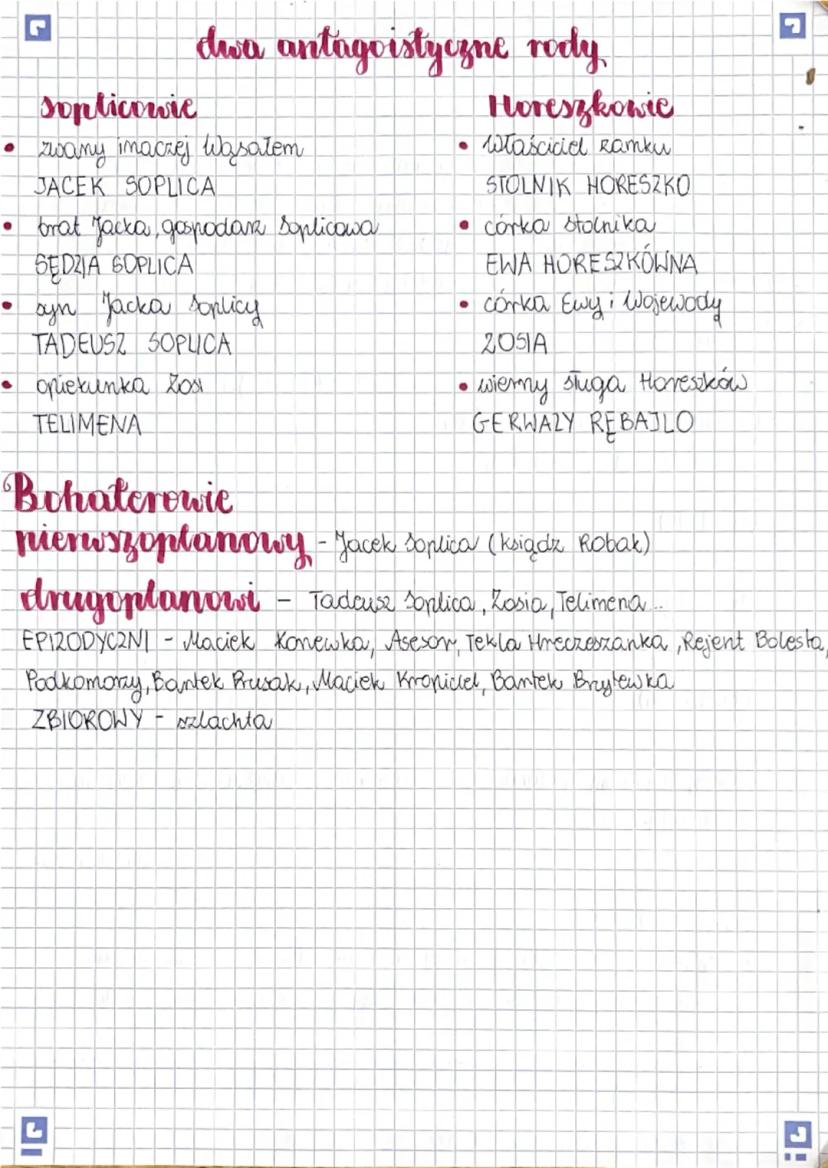 dwa antagoistyczne rody
Soplicowie
• zwany inaczej Wąsalem
JACEK SOPLICA
• brat Jacka, gospodarz Soplicowa
SĘDZIA SOPLICA
• syn Jacka Soplicy
TADEUSZ SOPLICA
• opiekunka Zosi
TELIMENA
Horeszkowie
• właściciel zamku
STOLNIK HORESZKO
• córka Stolnika
EWA HORESZKÓWNA
• córka Ewy i Wojewody
ZOSIA
• wierny sługa Horeszków
GERWAZY RĘBAJLO
Bohaterowie
pierwszoplanowy - Jacek Soplica (ksiądz Robak)
drugoplanowi - Tadeusz Soplica, Zosia, Telimena...
EPIZODYCZNI - Maciek Konewka, Asesor, Tekla Hreczeszanka, Rejent Bolesta,
Podkomorzy, Bartek Prusak, Maciek Kropiciel, Bartek Brzytewka
ZBIOROWY - szlachta